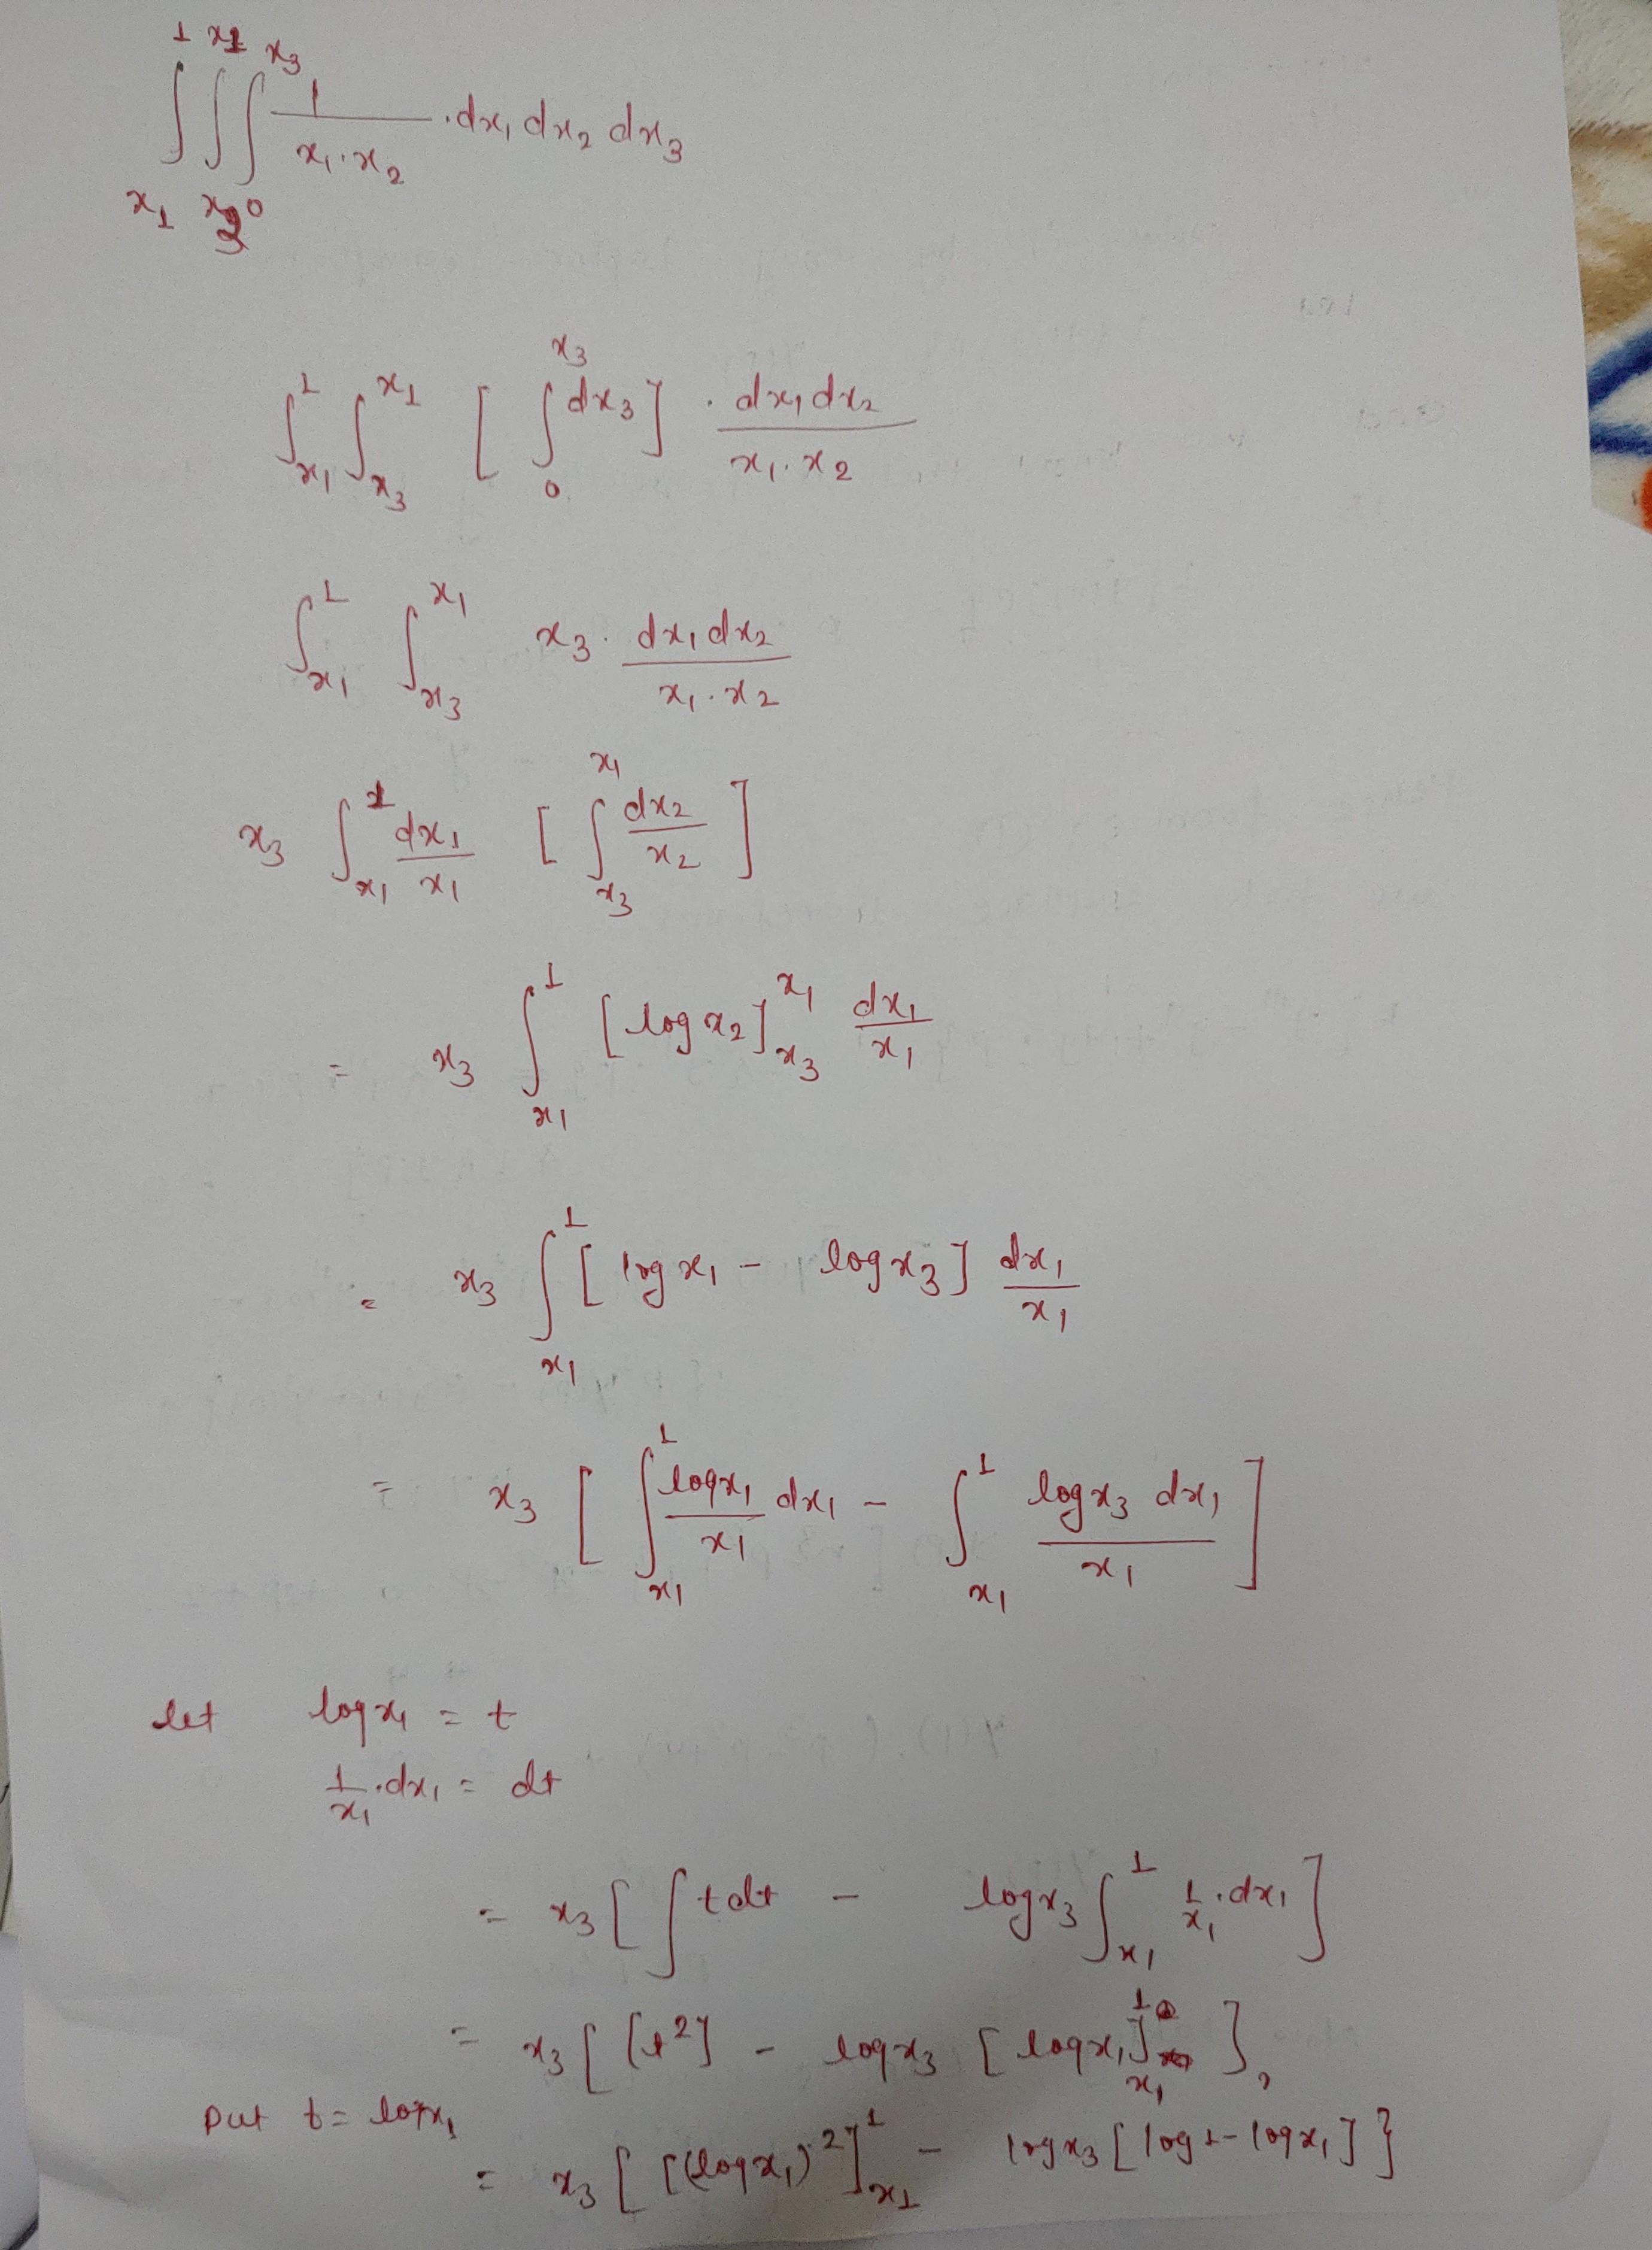 ∫_{x₁}^{1} ∫_{x₃}^{x₁} ∫_{0}^{x₃} 1/(x₁·x₂) · dx₁ dx₂ dx₃
∫_{x₁}^{1} ∫_{x₃}^{x₁} [ ∫_{0}^{x₃} dx₃ ] · dx₁dx₂/(x₁·x₂)
∫_{x₁}^{1} ∫_{x₃}^{x₁} x₃ · dx₁dx₂/(x₁·x₂)
x₃ ∫_{x₁}^{1} dx₁/x₁ [ ∫_{x₃}^{x₁} dx₂/x₂ ]
= x₃ ∫_{x₁}^{1} [log x₂]_{x₃}^{x₁} dx₁/x₁
= x₃ ∫_{x₁}^{1} [log x₁ - log x₃] dx₁/x₁
= x₃ [ ∫_{x₁}^{1} log x₁/x₁ dx₁ - ∫_{x₁}^{1} log x₃ dx₁/x₁ ]
let log x₁ = t
1/x₁ · dx₁ = dt
= x₃ [ ∫ t dt - log x₃ ∫_{x₁}^{1} 1/x₁ · dx₁ ]
= x₃ [ [t²] - log x₃ [log x₁]_{x₁}^{1} },
put t = log x₁
= x₃ [ [(log x₁)²]_{x₁}^{1} - log x₃ [log 1 - log x₁] }